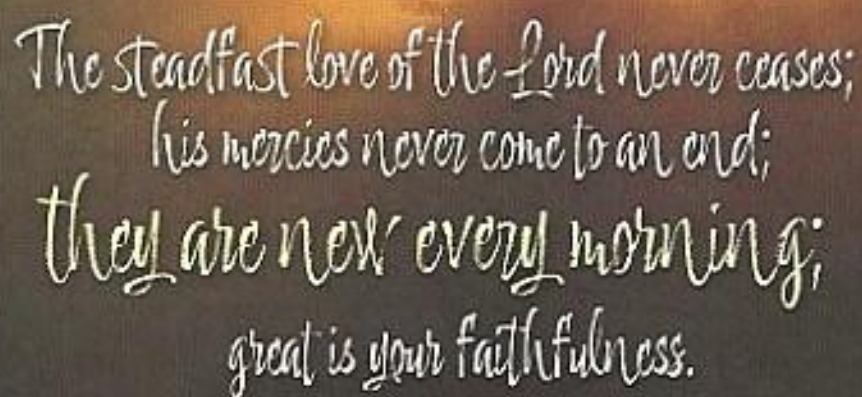 The steadfast love of the Lord never ceases;
his mercies never come to an end;
they are new every morning;
great is your faithfulness.